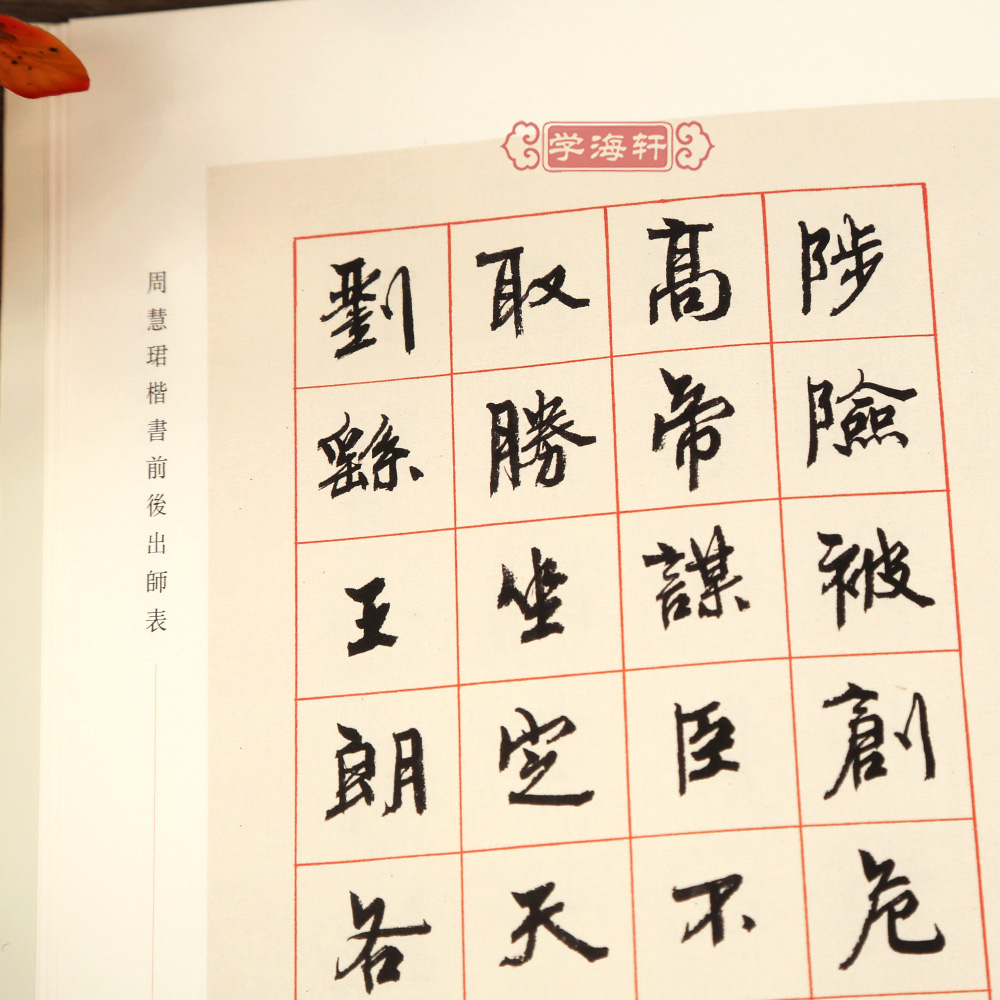 学海轩
陟險被創危
高帝謀臣不
取勝坐定天
劉繇王朗各
周慧珺楷書前後出師表